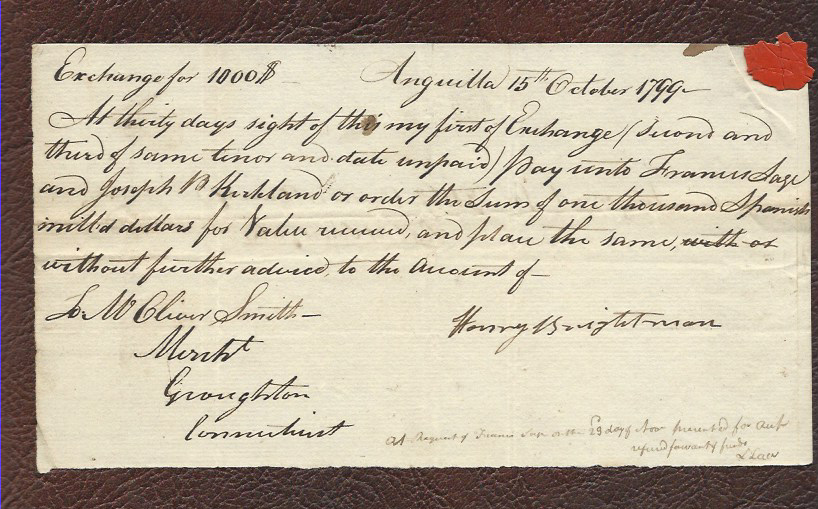 Exchange for 1000$ Anguilla 15th October 1799
At thirty days sight of this my first of Exchange (second and
third of same tenor and date unpaid) pay unto Francis Sage
and Joseph B Kirkland or order the Sum of one thousand Spanish
mill'd dollars for Value received, and place the same, with or
without further advice, to the account of
To Mr Oliver Smith Henry Brightman
Mercht
Groughton
Connecticut
At Request of Francis Sage on the 29 day of Nov presented for
refused for want of funds